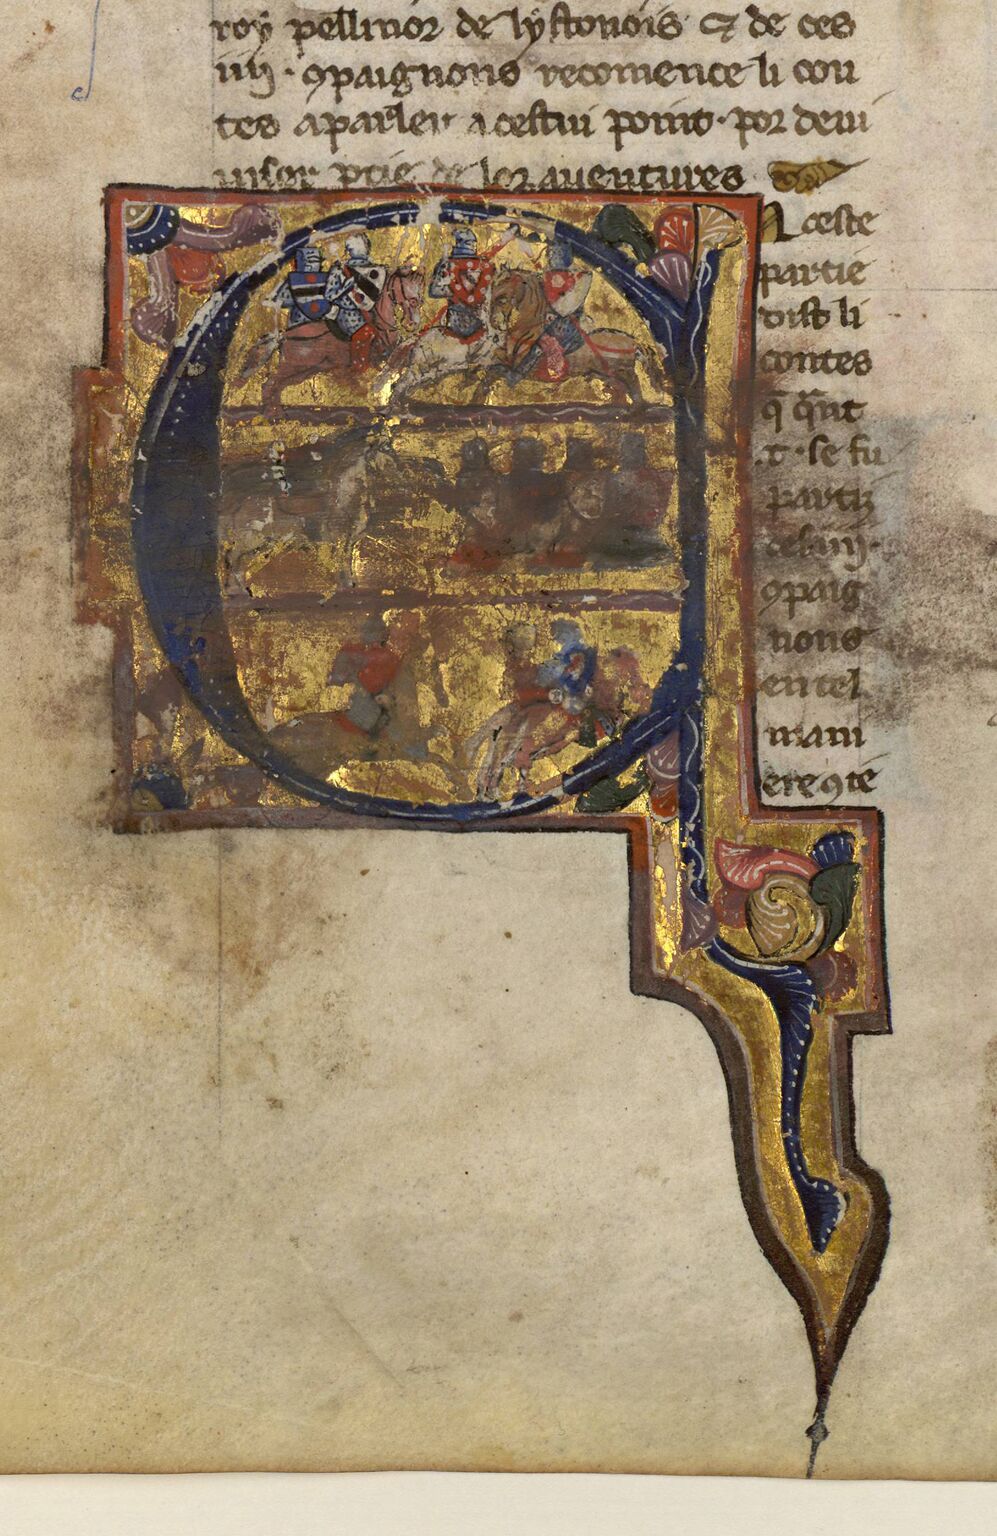 roy pellinor de lystonois & de ces
iiij · ꝯpaignons recomence li con
tes a parler a cestui point · por deui
uiser ptie de lor auentures
N ceste
partie
dist li
contes
q̄ q̄nt
.T · se fu
partiz
de
ꝯpaig
nons
en tel
mani
ere ꝯ te